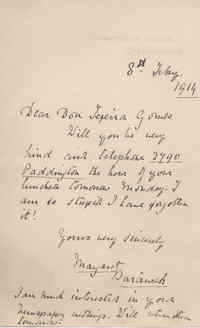 8st Feby
1914
Dear Don Texeira Gomes
Will you be very
kind and telephone 3790
Paddington the hour of your
luncheon tomorrow Monday. I
am so stupid I have forgotten
it!
Yours very sincerely
Margaret
I am much interested in your
newspaper cuttings. Will
tomorrow.